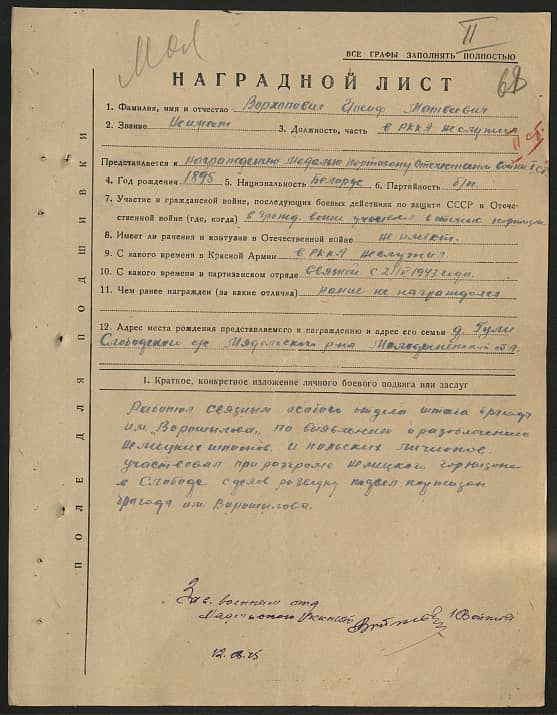 II
Мол
ВСЕ ГРАФЫ ЗАПОЛНЯТЬ ПОЛНОСТЬЮ
68
НАГРАДНОЙ ЛИСТ
1. Фамилия, имя и отчество Ворхопович Иосиф Матвеевич
2. Звание Неимеет 3. Должность, часть в РККА неслужил
II ст.
Представляется к награждению медалью партизану Отечественной войны II ст
4. Год рождения 1895 5. Национальность Белорус 6. Партийность б/п.
7. Участие в гражданской войне, последующих боевых действиях по защите СССР и Отече-
ственной войне (где, когда) в гражд. войне в отечеств.
8. Имеет ли ранения и контузии в Отечественной войне не имеет.
9. С какого времени в Красной Армии в РККА неслужил
10. С какого времени в партизанском отряде Связной с 1943 года.
11. Чем ранее награжден (за какие отличия) ранее не награждался
12. Адрес места рождения представляемого к награждению и адрес его семьи д. Гули
Слободской с/с Мядельского р-на Молодечненской обл.
1. Краткое, конкретное изложение личного боевого подвига или заслуг
Работал связным особого отдела штаба бригады
им. Ворошилова, по выявлению и разоблачению
немецких шпионов и польских
участвовал при разгроме немецкого горнизона
в Слободе сделав разведку подвел портизан
бригада им. Ворошилова.
Зав. военным отд
Мядельского
12.08.45
ПОЛЕ ДЛЯ ПОДШИВКИ